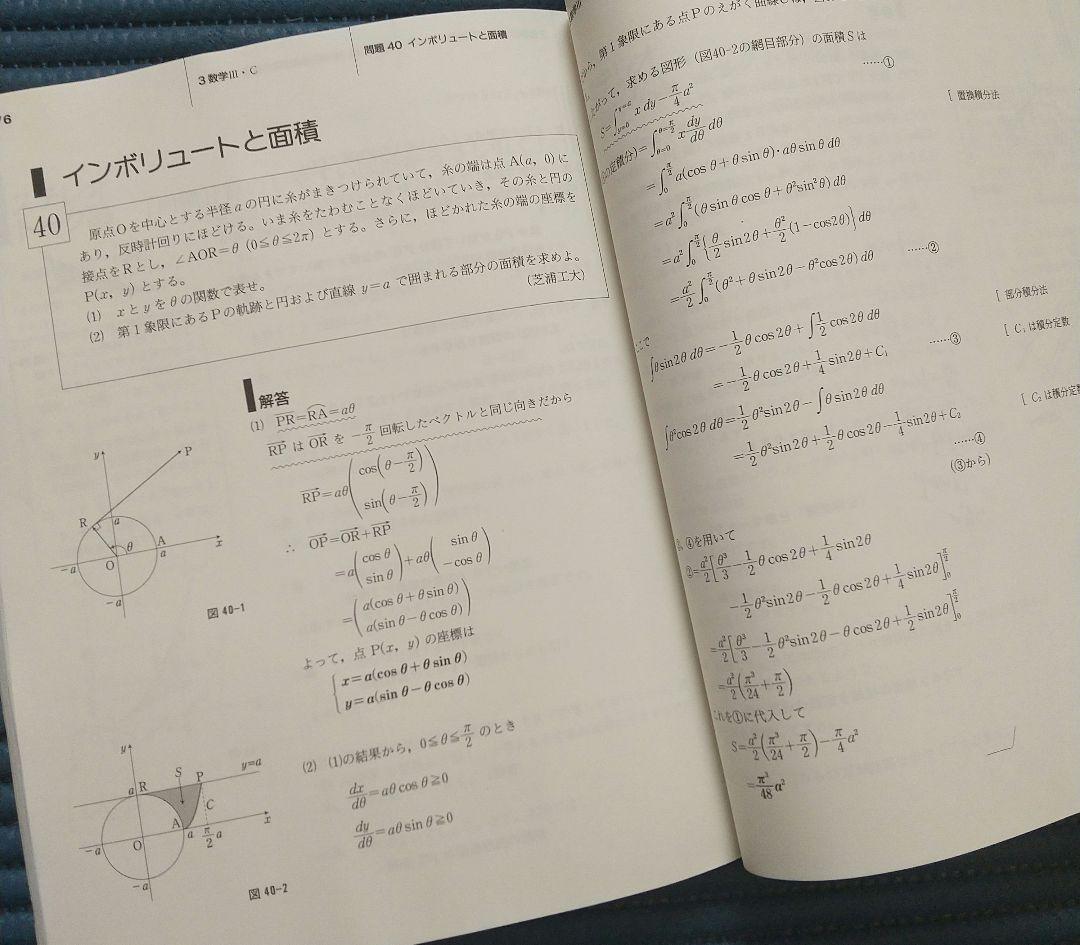 76
3 数学Ⅲ・C
問題 40 インボリュートと面積
インボリュートと面積
40
原点Oを中心とする半径aの円に糸がまきつけられていて，糸の端は点A(a, 0)に
あり，反時計回りにほどける。いま糸をたわむことなくほどいていき，その糸と円の
接点をRとし，∠AOR=θ (0≦θ≦2π) とする。さらに，ほどかれた糸の端の座標を
P(x, y) とする。
(1) xとyをθの関数で表せ。
(2) 第1象限にあるPの軌跡と円および直線 y=a で囲まれる部分の面積を求めよ。
(芝浦工大)
解答
(1) PR=R͡A=aθ
RP→ は OR→ を −π/2 回転したベクトルと同じ向きだから
RP→=aθ(cos(θ−π/2), sin(θ−π/2))
∴ OP→=OR→+RP→
=a(cosθ, sinθ)+aθ(sinθ, −cosθ)
=(a(cosθ+θsinθ), a(sinθ−θcosθ))
よって，点P(x, y) の座標は
x=a(cosθ+θsinθ)
y=a(sinθ−θcosθ)
y
P
R
a
θ
A
−a
O
a
x
−a
図 40-1
(2) (1)の結果から，0≦θ≦π/2 のとき
dx/dθ=aθcosθ≧0
dy/dθ=aθsinθ≧0
y
y=a
S
a
R
P
C
A
x
−a
O
a
π/2 a
−a
図 40-2
第1象限にある点Pのえがく曲線Cは，
って，求める図形（図40-2の網目部分）の面積Sは
S=∫_{y=0}^{y=a} x dy−π/4 a² ……①
定積分)=∫_{θ=0}^{θ=π/2} x dy/dθ dθ [ 置換積分法
=∫_0^{π/2} a(cosθ+θsinθ)・aθsinθ dθ
=a²∫_0^{π/2}(θsinθcosθ+θ²sin²θ)dθ
=a²∫_0^{π/2}{θ/2 sin2θ+θ²/2(1−cos2θ)}dθ
=a²/2∫_0^{π/2}(θ²+θsin2θ−θ²cos2θ)dθ ……②
こで
∫θsin2θ dθ=−1/2 θcos2θ+∫1/2 cos2θ dθ [ 部分積分法
=−1/2 θcos2θ+1/4 sin2θ+C₁ ……③ [ C₁は積分定数
∫θ²cos2θ dθ=1/2 θ²sin2θ−∫θsin2θ dθ
=1/2 θ²sin2θ+1/2 θcos2θ−1/4 sin2θ+C₂ [ C₂は積分定数
……④
(③から)
④を用いて
②=a²/2[θ³/3−1/2 θcos2θ+1/4 sin2θ
−1/2 θ²sin2θ−1/2 θcos2θ+1/4 sin2θ]_0^{π/2}
=a²/2[θ³/3−1/2 θ²sin2θ−θcos2θ+1/2 sin2θ]_0^{π/2}
=a²/2(π³/24+π/2)
これを①に代入して
S=a²/2(π³/24+π/2)−π/4 a²
=π³/48 a²